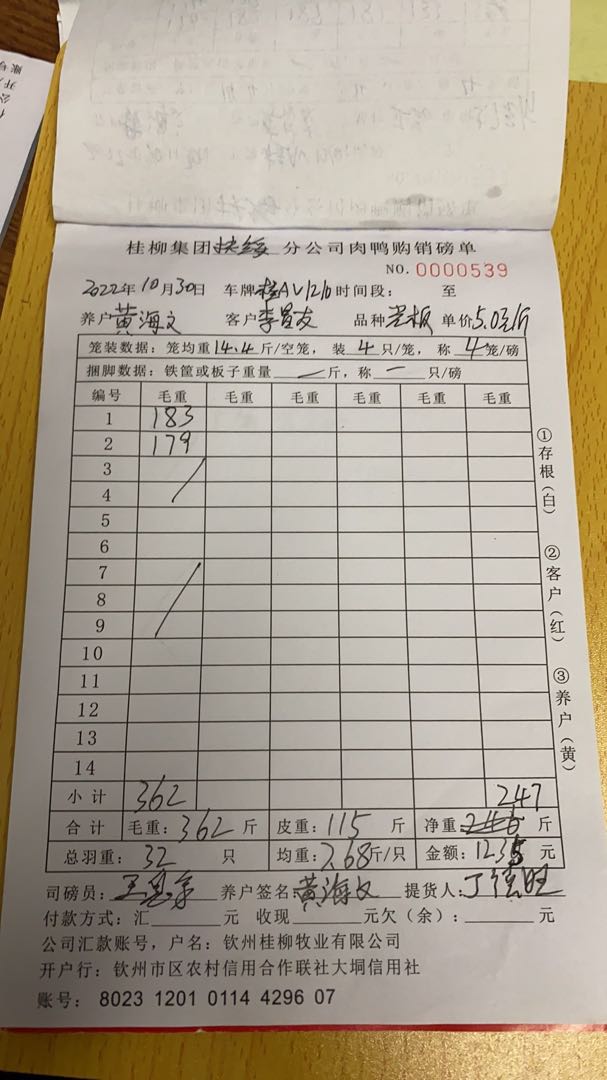 桂柳集团扶绥分公司肉鸭购销磅单
NO. 0000539
2022年10月30日 车牌桂AV1210 时间段: 至
养户黄海文 客户李昌友 品种光板 单价5.0元/斤
笼装数据: 笼均重14.4斤/空笼, 装4只/笼, 称4笼/磅
捆脚数据: 铁筐或板子重量 — 斤, 称 — 只/磅
编号 毛重 毛重 毛重 毛重 毛重 毛重
1 183
2 179
3
4
5
6
7
8
9
10
11
12
13
14
小计 362 247
合计 毛重: 362斤 皮重: 115斤 净重: 246斤
总羽重: 32只 均重: 7.68斤/只 金额: 1235元
司磅员: 养户签名: 黄海文 提货人: 丁强旺
付款方式: 汇 元 收现 元欠(余): 元
公司汇款账号, 户名: 钦州桂柳牧业有限公司
开户行: 钦州市区农村信用合作联社大垌信用社
账号: 8023 1201 0114 4296 07
①存根(白)
②客户(红)
③养户(黄)